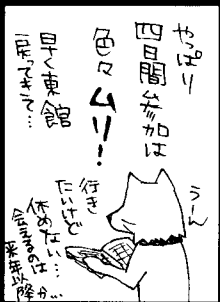 やっぱり
四日間参加は
色々ムリ！
早く東館
戻ってきて…
うーん
行き
たいけど
休めない…
会えるのは
来年以降か…